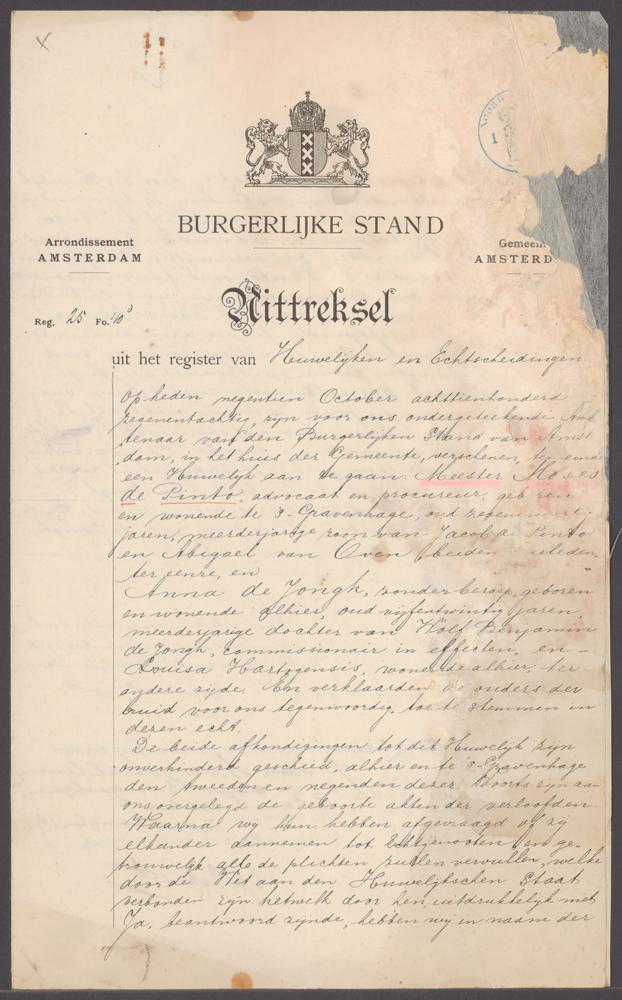 BURGERLIJKE STAND
Arrondissement
AMSTERDAM
Gemeen
AMSTERD
Uittreksel
Reg. 25 Fo.
uit het register van Huwelijken en Echtscheidingen
Op heden negentien October achttienhonderd
zevenentachtig, zijn voor ons ondergeteekende Amb
tenaar van den Burgerlijken Stand van Amst
dam, in het huis der Gemeente, verschenen, ten einde
een Huwelijk aan te gaan: Meester Moses
de Pinto, advocaat en procureur, geb ren
en wonende te 's-Gravenhage, oud
jaren, meerderjarige zoon van Jacob de Pinto
en Abigael van Oven, beiden
ter eenre, en
Anna de Jongh, zonder beroep, geboren
en wonende alhier, oud vijfentwintig jaren
meerderjarige dochter van Wolf Benjamin
de Jongh, commissionair in effecten, en -
Louisa Hartogensis, wonende alhier, ter
andere zijde. En verklaarden de ouders der
bruid voor ons tegenwoordig, toe te stemmen in
dezen echt.
De beide afkondigingen tot dit Huwelijk zijn
onverhinderd geschied, alhier en te 's-Gravenhage
den tweeden en negenden dezer. Voorts zijn aan
ons overgelegd de geboorte akten der verloofden.
Waarna wij hun hebben afgevraagd of zij
elkander aannemen tot Echtgenooten en ge-
trouwelijk alle de plichten zullen vervullen, welke
door de Wet aan den Huwelijkschen Staat
verbonden zijn: hetwelk door hen, uitdrukkelijk met
Ja, beantwoord zijnde, hebben wij in naam der